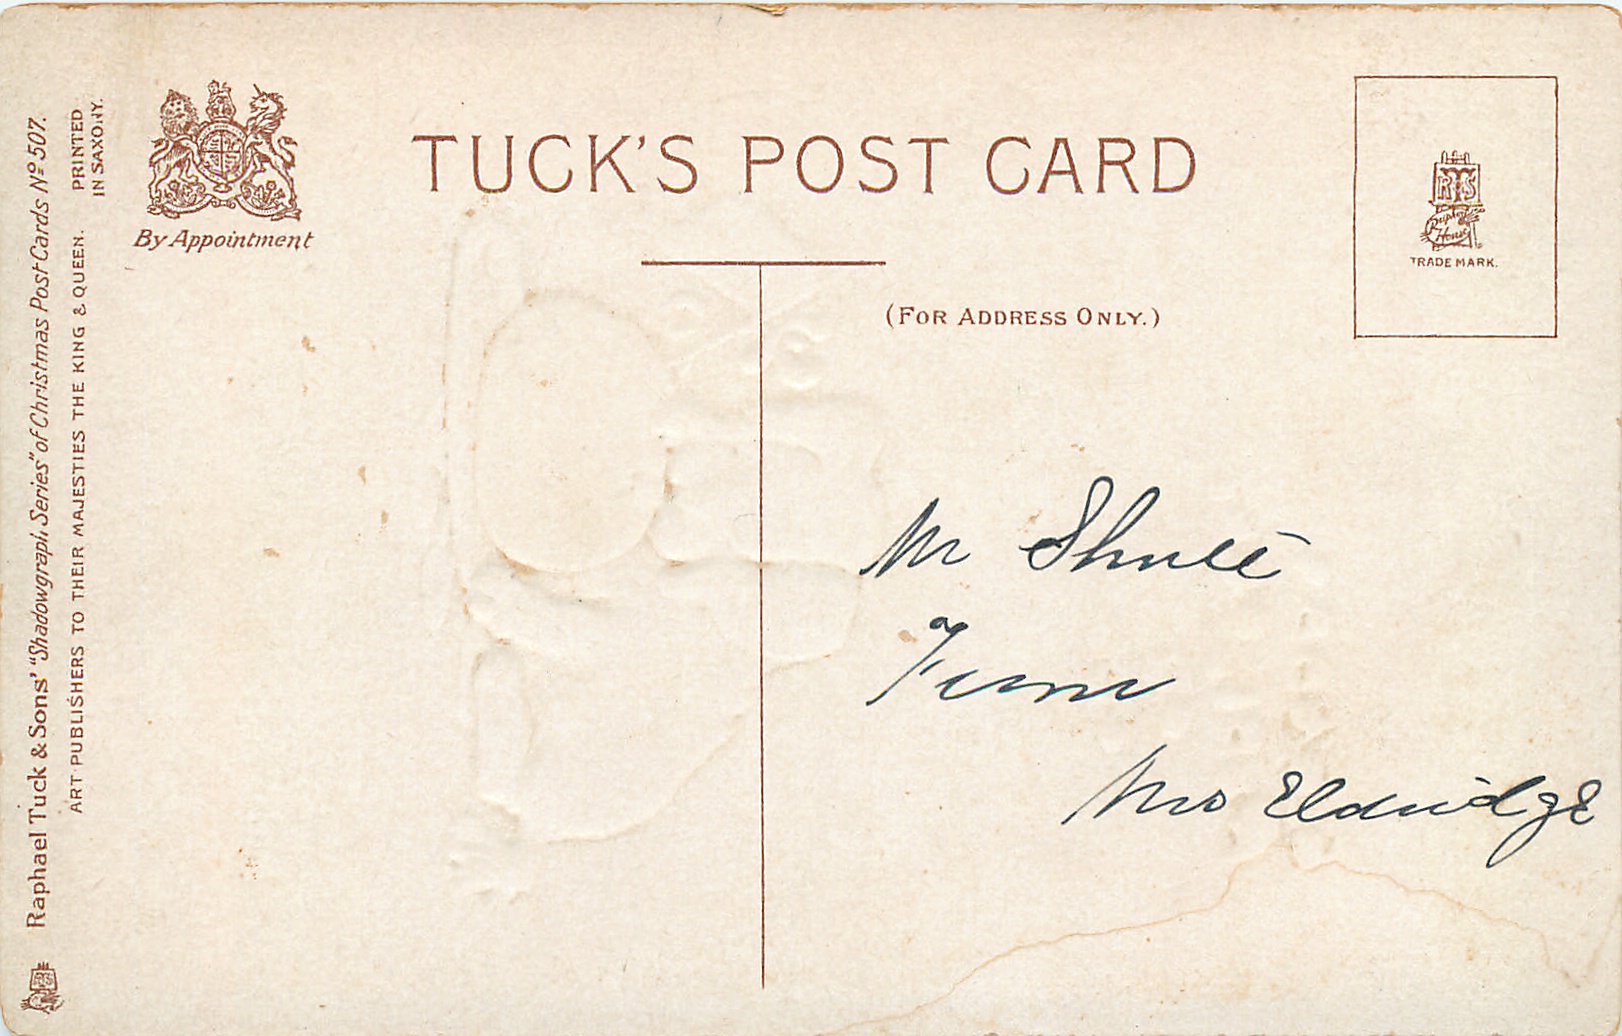 TUCK'S POST CARD
By Appointment
(FOR ADDRESS ONLY.)
RTS
Raphael House
TRADE MARK.
Raphael Tuck & Sons' "Shadowgraph Series" of Christmas Post Cards Nº 507.
ART PUBLISHERS TO THEIR MAJESTIES THE KING & QUEEN.
PRINTED
IN SAXONY.
Mr
From
Mrs Eldridge